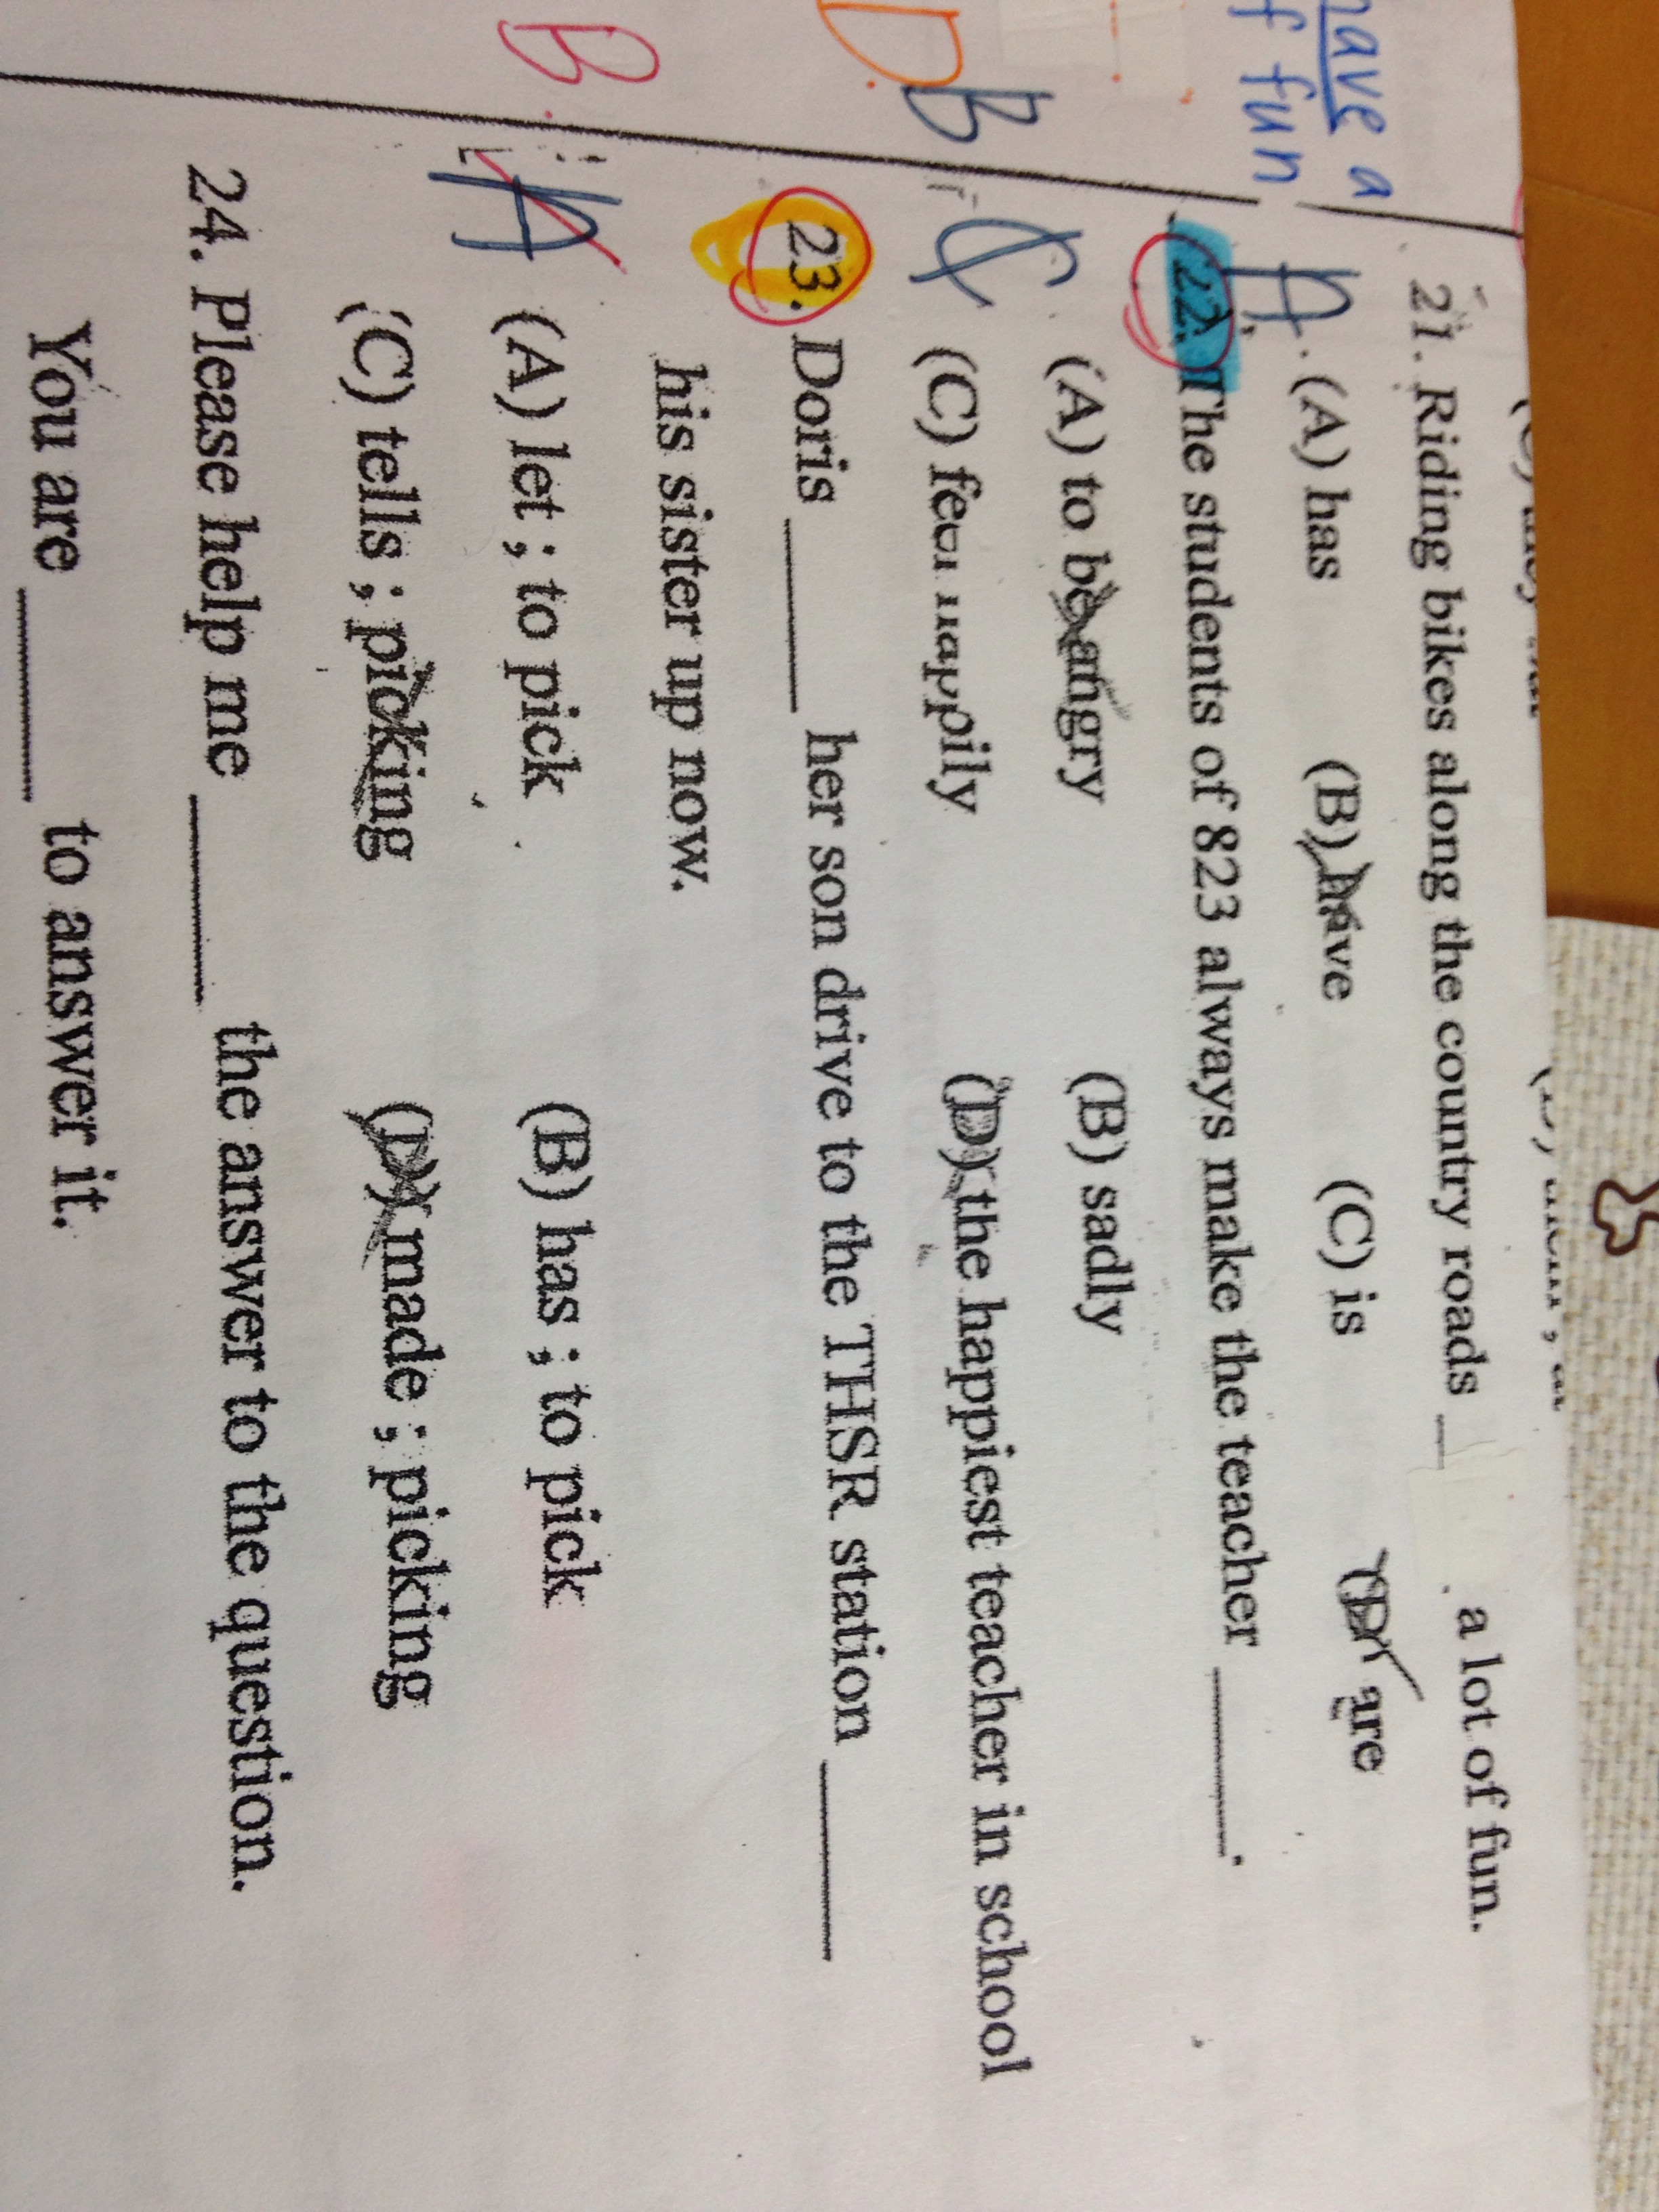 have a
f fun
21. Riding bikes along the country roads __ a lot of fun.
A. (A) has (B) have (C) is (D) are
22. The students of 823 always make the teacher ______.
(A) to be angry (B) sadly
D. B C (C) feel happily (D) the happiest teacher in school
23. Doris ______ her son drive to the THSR station ______
his sister up now.
B. A (A) let ; to pick (B) has ; to pick
(C) tells ; picking (D) made ; picking
24. Please help me ______ the answer to the question.
You are ______ to answer it.